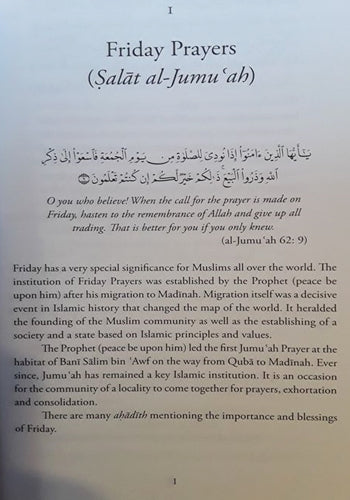 I
Friday Prayers
(Ṣalāt al-Jumuʿah)
يَـٰٓأَيُّهَا ٱلَّذِينَ ءَامَنُوٓا۟ إِذَا نُودِىَ لِلصَّلَوٰةِ مِن يَوْمِ ٱلْجُمُعَةِ فَٱسْعَوْا۟ إِلَىٰ ذِكْرِ
ٱللَّهِ وَذَرُوا۟ ٱلْبَيْعَ ۚ ذَٰلِكُمْ خَيْرٌ لَّكُمْ إِن كُنتُمْ تَعْلَمُونَ ۝٩
O you who believe! When the call for the prayer is made on
Friday, hasten to the remembrance of Allah and give up all
trading. That is better for you if you only knew.
(al-Jumuʿah 62: 9)
Friday has a very special significance for Muslims all over the world. The
institution of Friday Prayers was established by the Prophet (peace be
upon him) after his migration to Madīnah. Migration itself was a decisive
event in Islamic history that changed the map of the world. It heralded
the founding of the Muslim community as well as the establishing of a
society and a state based on Islamic principles and values.
The Prophet (peace be upon him) led the first Jumuʿah Prayer at the
habitat of Banī Sālim bin ʿAwf on the way from Qubā to Madīnah. Ever
since, Jumuʿah has remained a key Islamic institution. It is an occasion
for the community of a locality to come together for prayers, exhortation
and consolidation.
There are many aḥādīth mentioning the importance and blessings
of Friday.
1